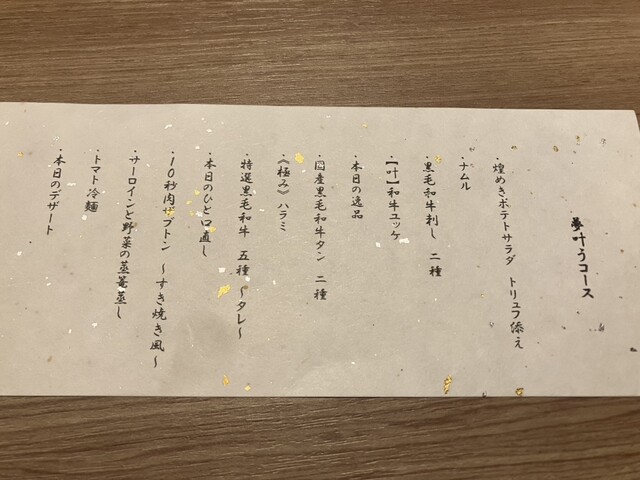 夢叶うコース
・煌めきポテトサラダ　トリュフ添え
・ナムル
・黒毛和牛刺し　二種
・【叶】和牛ユッケ
・本日の逸品
・国産黒毛和牛タン　二種
・《極み》ハラミ
・特選黒毛和牛　五種　～タレ～
・本日のひと口直し
・10秒肉ザブトン　～すき焼き風～
・サーロインと野菜の蒸篭蒸し
・トマト冷麺
・本日のデザート